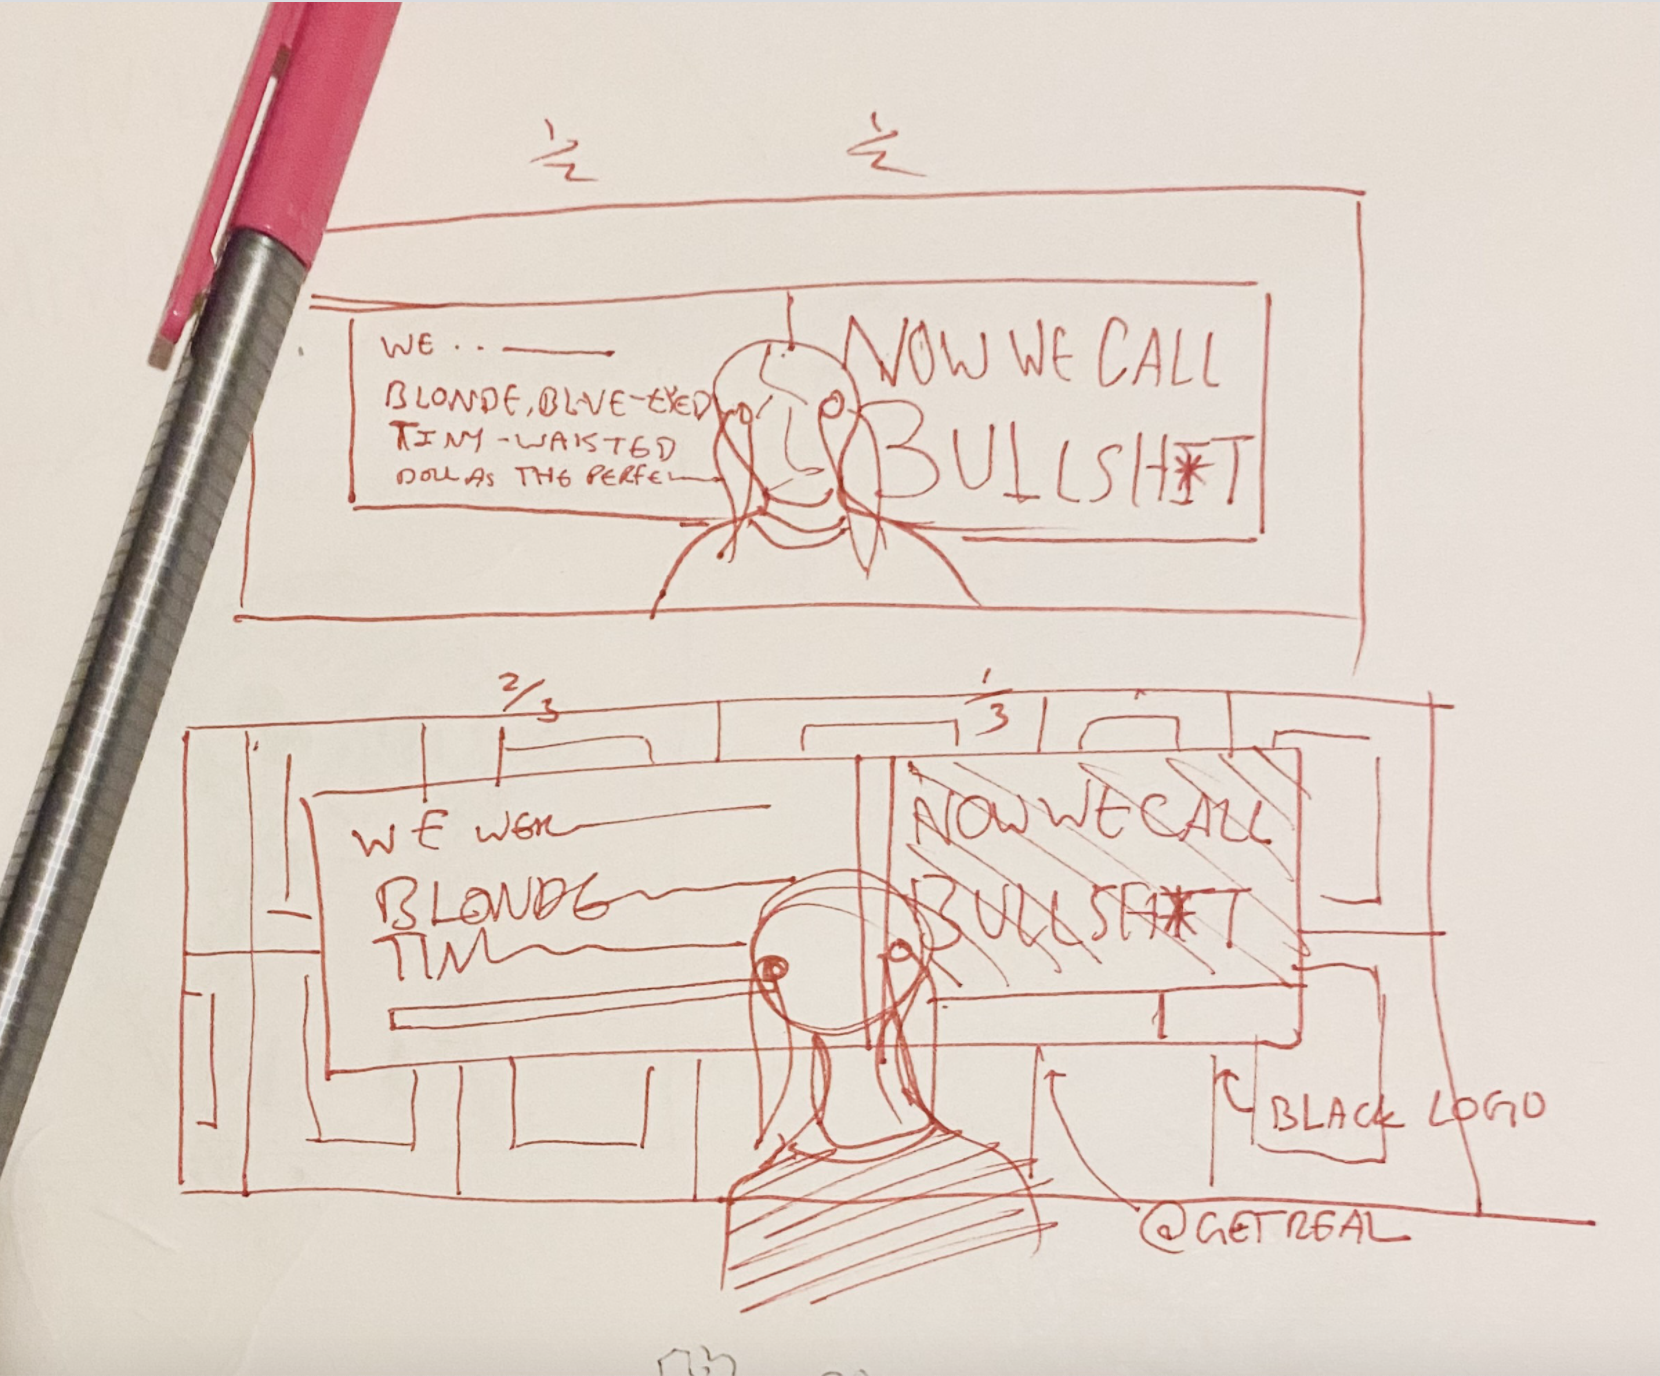 1/2 1/2
WE ..
BLONDE, BLUE-EYED
TINY-WAISTED
DOLL AS THE PERFE
NOW WE CALL
BULLSH*T
2/3 1/3
WE WER
BLONDE
TIN
NOW WE CALL
BULLSH*T
BLACK LOGO
@GETREAL